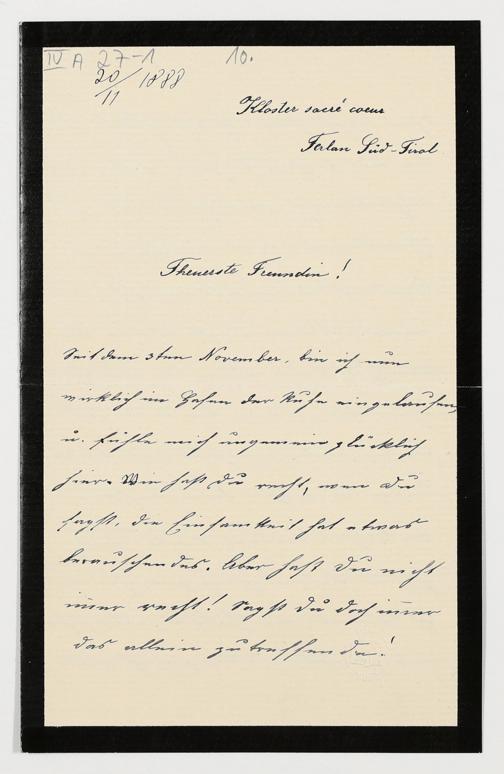 IV A 27-1 10.
20/11 1888
Kloster sacré coeur
Terlan Süd-Tirol
Theuerste Freundin!
Seit dem 3ten November, bin ich nun
wirklich im Hafen der Ruhe eingelaufen,
u. fühle mich ungemein glücklich
hier. Wie hast du recht, wen du
sagst, die Einsamkeit hat etwas
berauschendes. Aber hast du nicht
im̅er recht! Sagst du doch im̅er
das allein zutreffende!